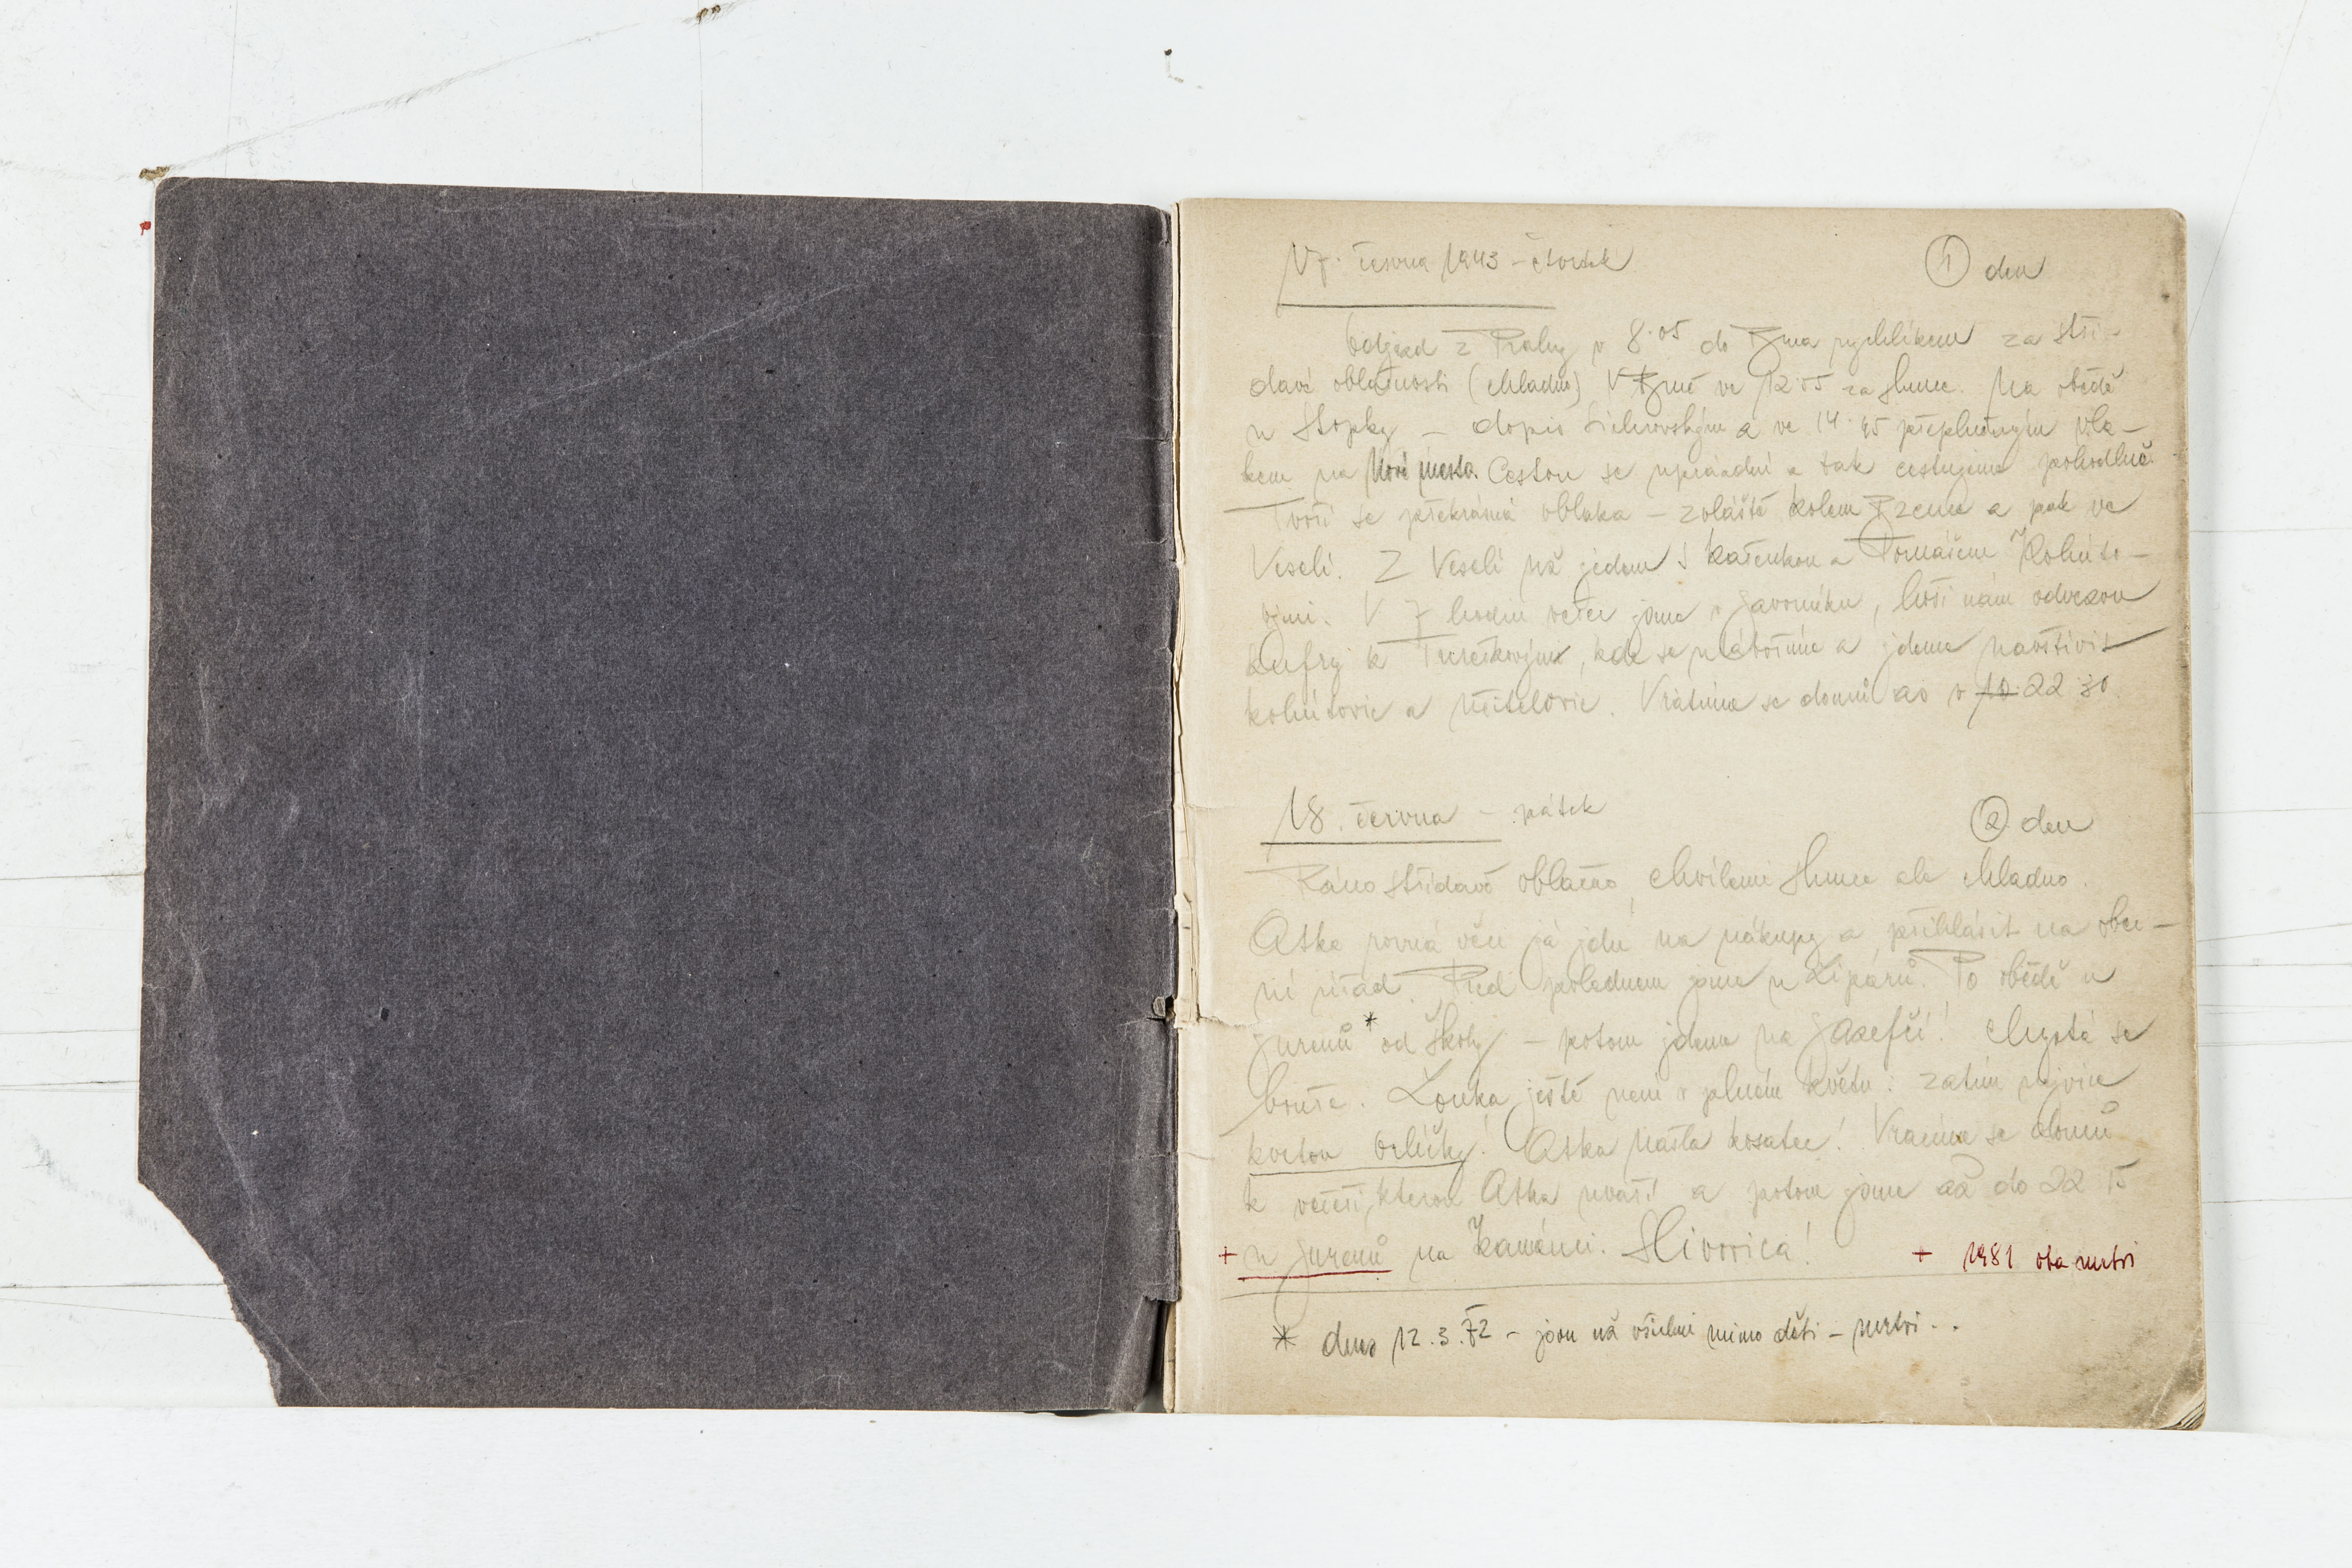 17. června 1943 – čtvrtek
① den
Odjezd z Prahy v 8·05 do Brna rychlíkem za stří-
davé oblačnosti (chladno) V Brně ve 12·05 za slunce. Na obědě
u Stopky – dopis a ve 14·45 přeplněným vla-
kem na Nové město. Cestou se uprázdní a tak cestujeme pohodlně.
Tvoří se překrásná oblaka – zvláště kolem Bzence a pak ve
Veselí. Z Veselí už jedem s Kačenkou a Tomášem Kohúto-
vými. V 7 hodin večer jsme v Javorníku, hoši nám odvezou
kufry k Turečkovým, kde se utáboříme a jdeme navštívit
kohútovic a učitelovic. Vrátíme se domů až v 10 22·30.
18. června – pátek
② den
Ráno střídavě oblačno, chvílemi slunce ale chladno.
Atka rovná věci já jdu na nákupy a přihlásit na obec-
ní úřad. Před polednem jsme u Lipárů. Po obědě u
Jurenů* od školy – potom jdeme na Jazefčí! Chystá se
bouře. Louka ještě není v plném květu: zatím nejvíce
kvetou orlíčky! Atka našla kosatec! Vracíme se domů
k večeři, kterou Atka uvaří a potom jsme až do 22 15
+ u Jurenů na Kaménci. Slivovica!
+ 1981 oba mrtvi
* dnes 12.3.72 – jsou už všichni mimo děti – mrtvi..